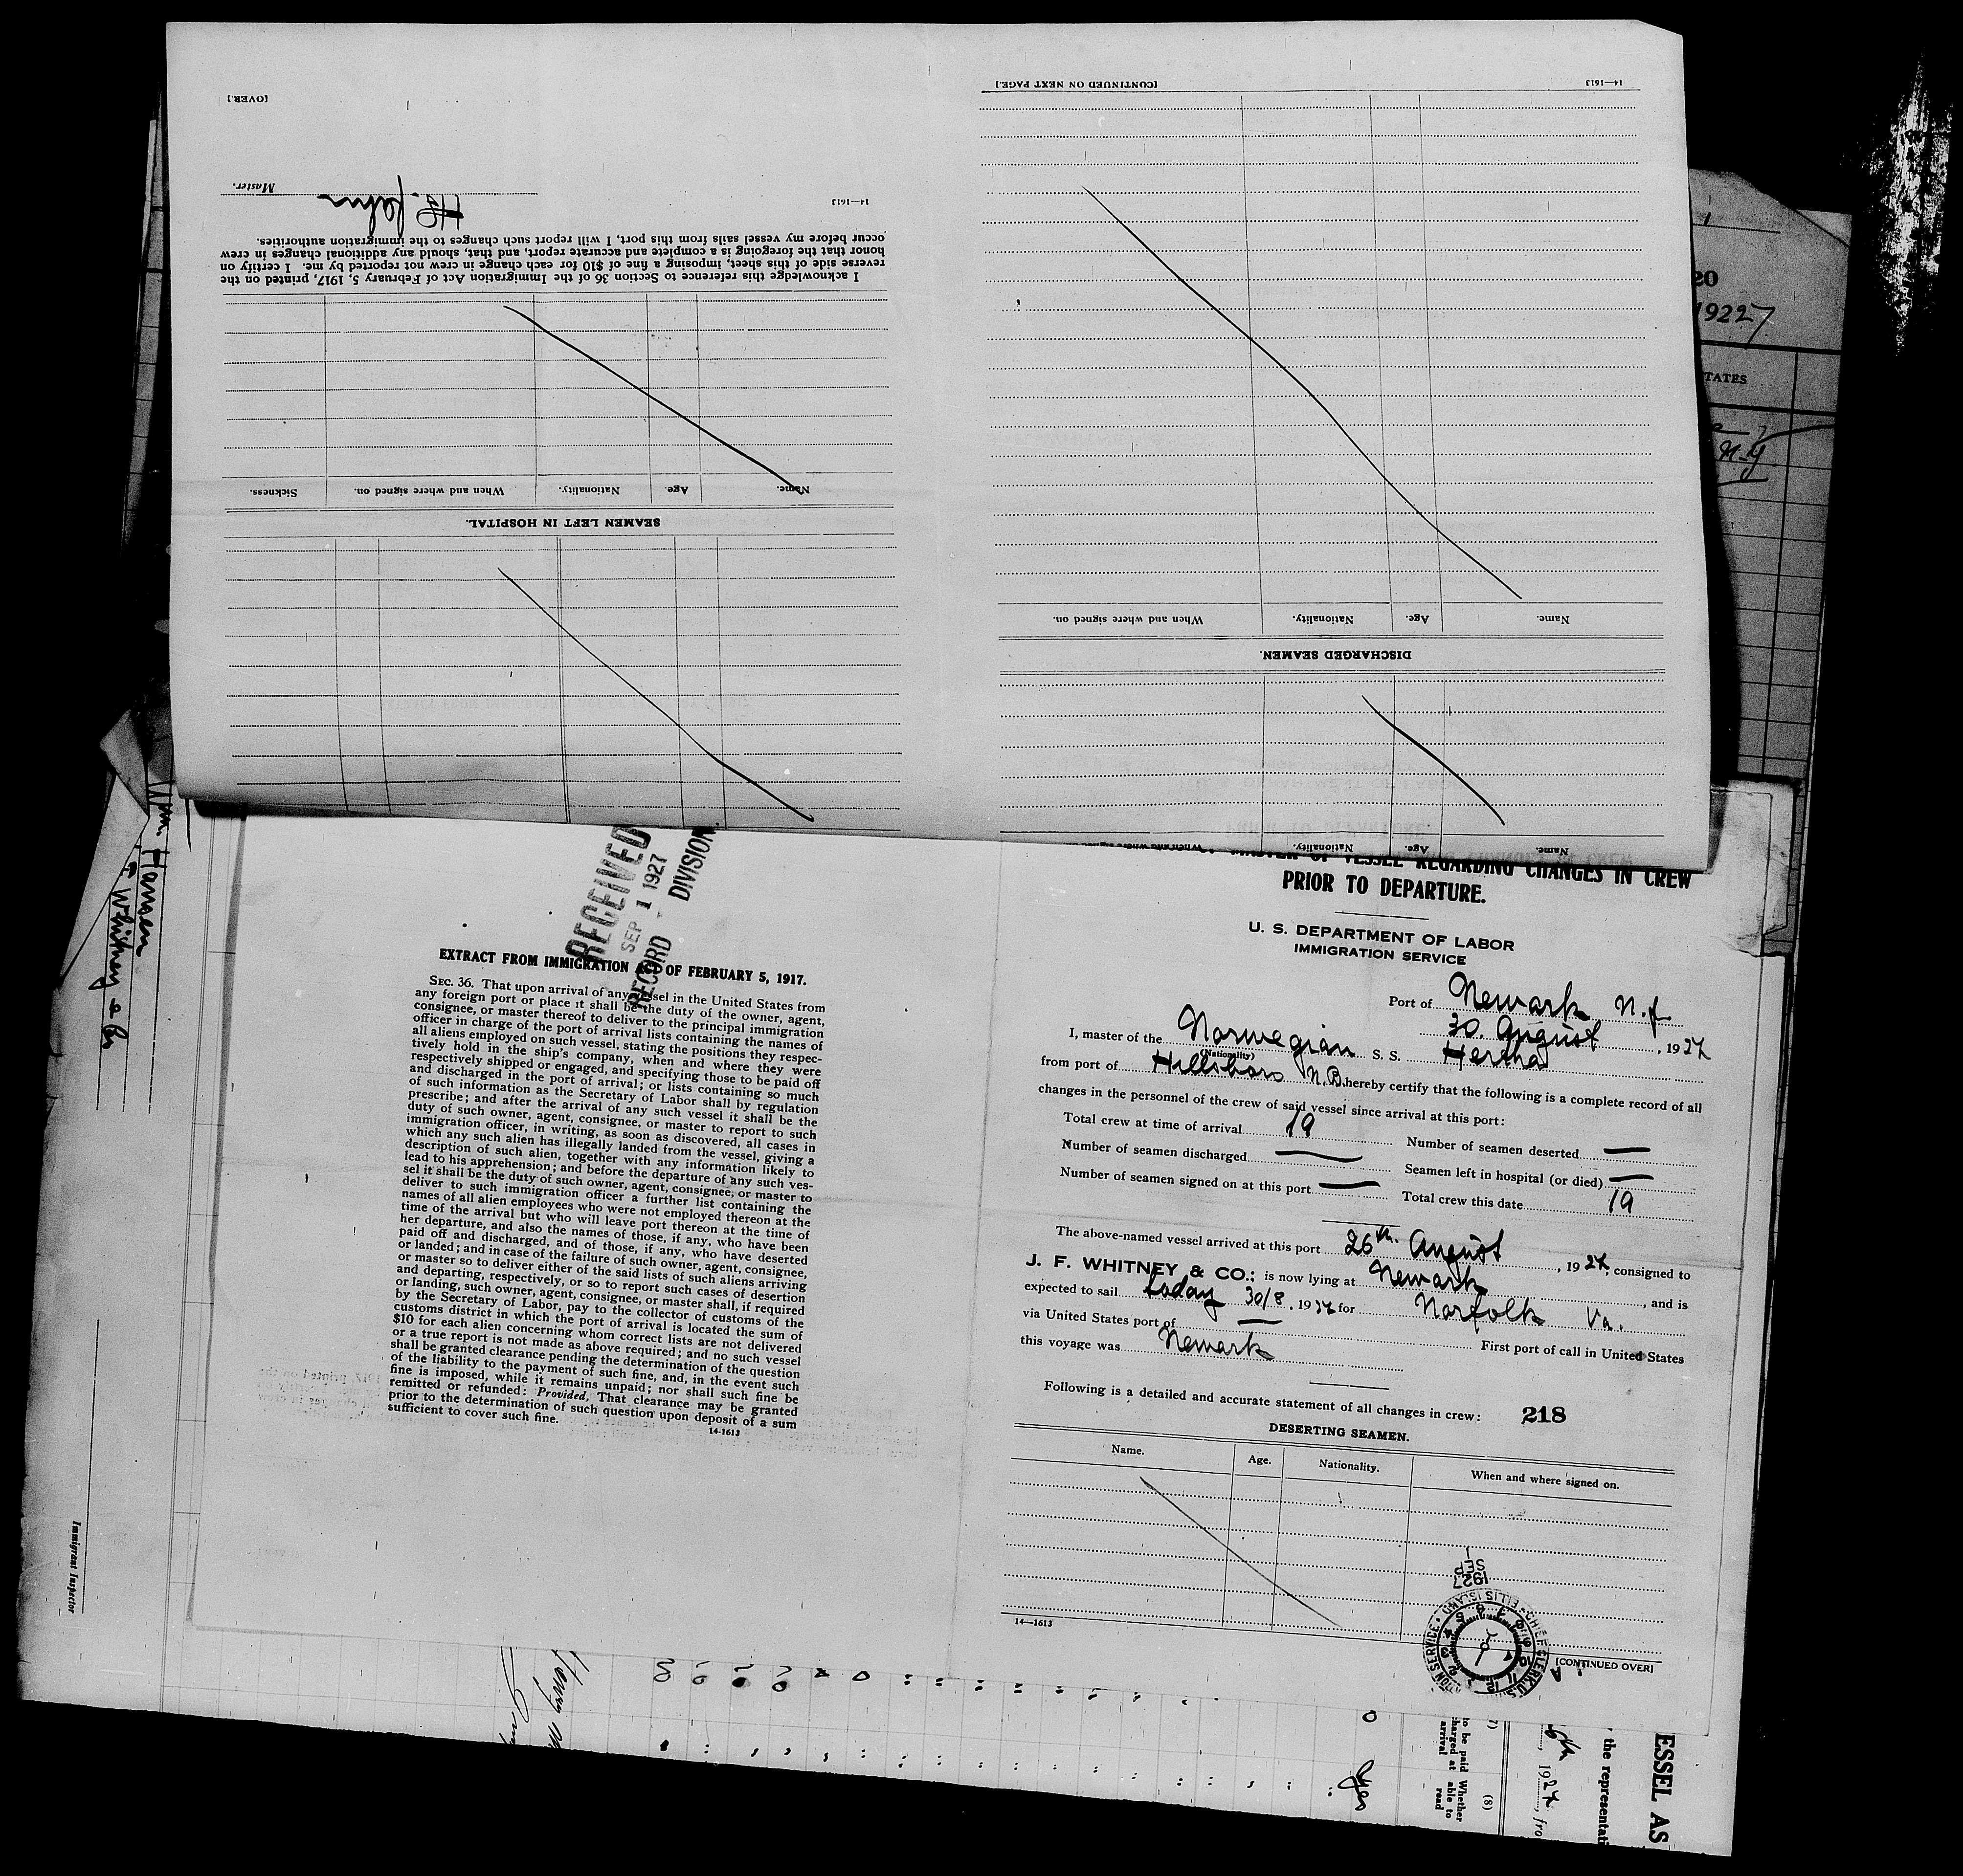 [CONTINUED ON NEXT PAGE.]
14—1613
When and where signed on.
Nationality.
Age.
Name.
DISCHARGED SEAMEN.
When and where signed on.
Nationality.
Age.
Name.
SEAMEN LEFT IN HOSPITAL.
Name.
Age.
Nationality.
When and where signed on.
Sickness.
I acknowledge this reference to Section 36 of the Immigration Act of February 5, 1917, printed on the
reverse side of this sheet, imposing a fine of $10 for each change in crew not reported by me. I certify on
honor that the foregoing is a complete and accurate report, and that, should any additional changes in crew
occur before my vessel sails from this port, I will report such changes to the immigration authorities.
14—1613
Master.
[OVER.]
20
19227
TATES
N-Y
MASTER OF VESSEL REGARDING CHANGES IN CREW
PRIOR TO DEPARTURE.
U. S. DEPARTMENT OF LABOR
IMMIGRATION SERVICE
Port of Newark N.J.
30. August, 1927
I, master of the Norwegian S. S. Hertha
(Nationality)
from port of Hillsboro N.B. hereby certify that the following is a complete record of all
changes in the personnel of the crew of said vessel since arrival at this port:
Total crew at time of arrival 19
Number of seamen deserted —
Number of seamen discharged —
Seamen left in hospital (or died) —
Number of seamen signed on at this port —
Total crew this date 19
The above-named vessel arrived at this port 26th August, 1927, consigned to
J. F. WHITNEY & CO.; is now lying at Newark, and is
expected to sail today 30/8, 1927 for Norfolk Va.
via United States port of — First port of call in United States
this voyage was Newark
Following is a detailed and accurate statement of all changes in crew: 218
DESERTING SEAMEN.
Name. Age. Nationality. When and where signed on.
14—1613
[CONTINUED OVER]
1927
SEP
1
CHIEF CLERK U.S.
ELLIS ISLAND
RECEIVED
SEP 1 1927
RECORD DIVISION.
EXTRACT FROM IMMIGRATION ACT OF FEBRUARY 5, 1917.
SEC. 36. That upon arrival of any vessel in the United States from
any foreign port or place it shall be the duty of the owner, agent,
consignee, or master thereof to deliver to the principal immigration
officer in charge of the port of arrival lists containing the names of
all aliens employed on such vessel, stating the positions they respec-
tively hold in the ship's company, when and where they were
respectively shipped or engaged, and specifying those to be paid off
and discharged in the port of arrival; or lists containing so much
of such information as the Secretary of Labor shall by regulation
prescribe; and after the arrival of any such vessel it shall be the
duty of such owner, agent, consignee, or master to report to such
immigration officer, in writing, as soon as discovered, all cases in
which any such alien has illegally landed from the vessel, giving a
description of such alien, together with any information likely to
lead to his apprehension; and before the departure of any such ves-
sel it shall be the duty of such owner, agent, consignee, or master to
deliver to such immigration officer a further list containing the
names of all alien employees who were not employed thereon at the
time of the arrival but who will leave port thereon at the time of
her departure, and also the names of those, if any, who have been
paid off and discharged, and of those, if any, who have deserted
or landed; and in case of the failure of such owner, agent, consignee,
or master so to deliver either of the said lists of such aliens arriving
and departing, respectively, or so to report such cases of desertion
or landing, such owner, agent, consignee, or master shall, if required
by the Secretary of Labor, pay to the collector of customs of the
customs district in which the port of arrival is located the sum of
$10 for each alien concerning whom correct lists are not delivered
or a true report is not made as above required; and no such vessel
shall be granted clearance pending the determination of the question
of the liability to the payment of such fine, and, in the event such
fine is imposed, while it remains unpaid; nor shall such fine be
remitted or refunded: Provided, That clearance may be granted
prior to the determination of such question upon deposit of a sum
sufficient to cover such fine.
14-1613
Hansen
Whitney & Co
Immigrant Inspector
yes
(7)
to be paid
charged at
arrival
(8)
Whether
able to
read
6th, 1927, fro
the representati
ESSEL AS